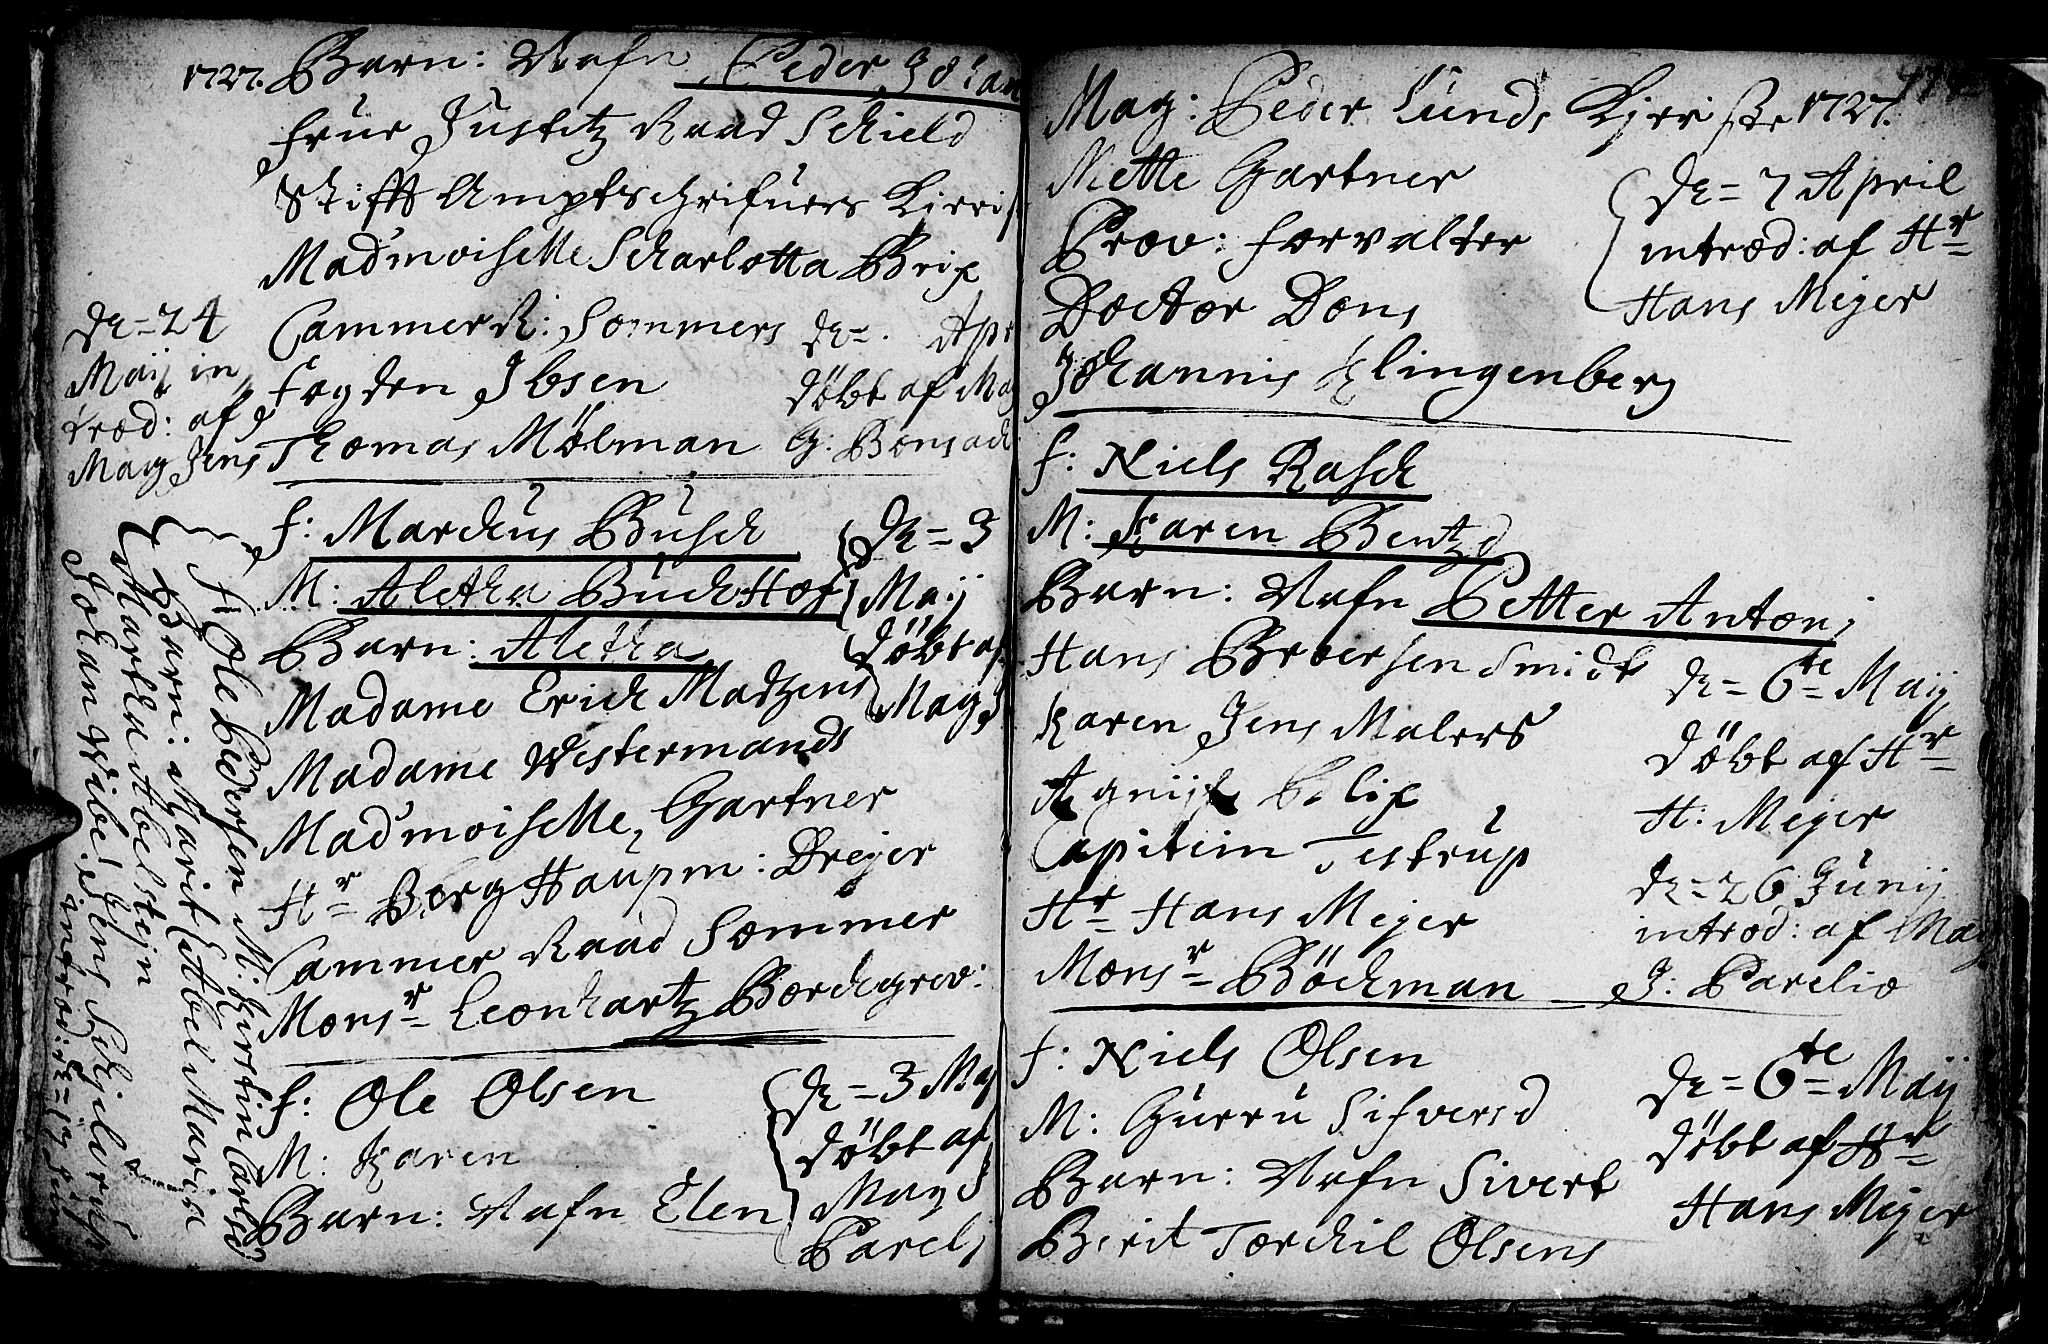 1727.
Barn: Nafn Peder Johan
Frue Justitz Raad Schield
Stifft Amptschrifuers Kierris
Mad'moiselle Scharlotta Brix
Cammer R: Sommers
Fogden Ibsen
Thomas Mölman
de = . Apr
döbt af Mag
G: Bonsach
de = 24
Maij in
trod: af
Mag Jens
F: Marchus Busch
M: Aletha Buchhof
Barn: Aletha
Madame Erich Matzens
Madame Westermands
Mad'moiselle Gartner
Hr Berg Haupm: Drejer
Cammer Raad Sommer
Monsr Leonhartz Borchgrev:
de = 3
Maij
döbt af
Mag J
F: Ole Olsen
M: Karen
Barn: Nafn Elen
de = 3 Maj
döbt af
Mag J
Parel
F: Ole Pedersen M: Kirstin Carlsd
Barn: Marit Abel Marin
Martha Abelstejn
Johan Wibe Jens Schjelerup
introd: de = 19 Juni
Mag: Peder Lunds Kjeriste 1727.
Mette Gartner
Prov: Forvalter
Doctor Dons
Johannis Klingenberg
de = 7 April
introd: af Hr
Hans Mejer
F: Niels Rasch
M: Karen Bentzd
Barn: Nafn Petter Antoni
Hans Broersen Smidt
Karen Jens Malers
Agnijt Felix
Capitein Testrup
Hr Hans Mejer
Monsr Böchman
de = 6te Maij
döbt af Hr
H: Mejer
de = 26 Junij
introd: af Mag
J: Parelio
F: Niels Olsen
M: Gurru Sifversd
Barn: Nafn Sivert
Berit Torchil Olsens
de = 6te Maij
döbt af Hr
Hans Mejer